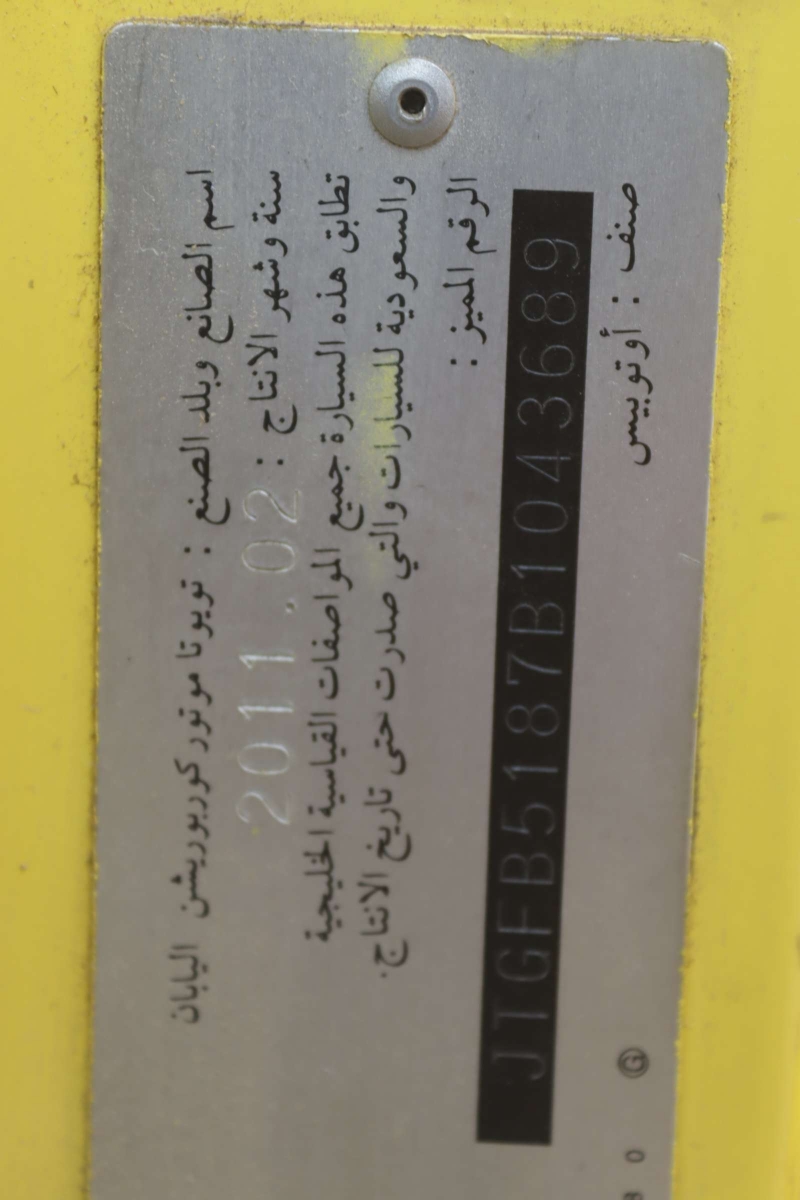 اسم الصانع وبلد الصنع : تويوتا موتور كوربوريشن اليابان
سنة وشهر الانتاج : 2011.02
تطابق هذه السيارة جميع المواصفات القياسية الخليجية
والسعودية للسيارات والتي صدرت حتى تاريخ الانتاج.
الرقم المميز :
JTGFB5187B1043689
صنف : أوتوبيس
G